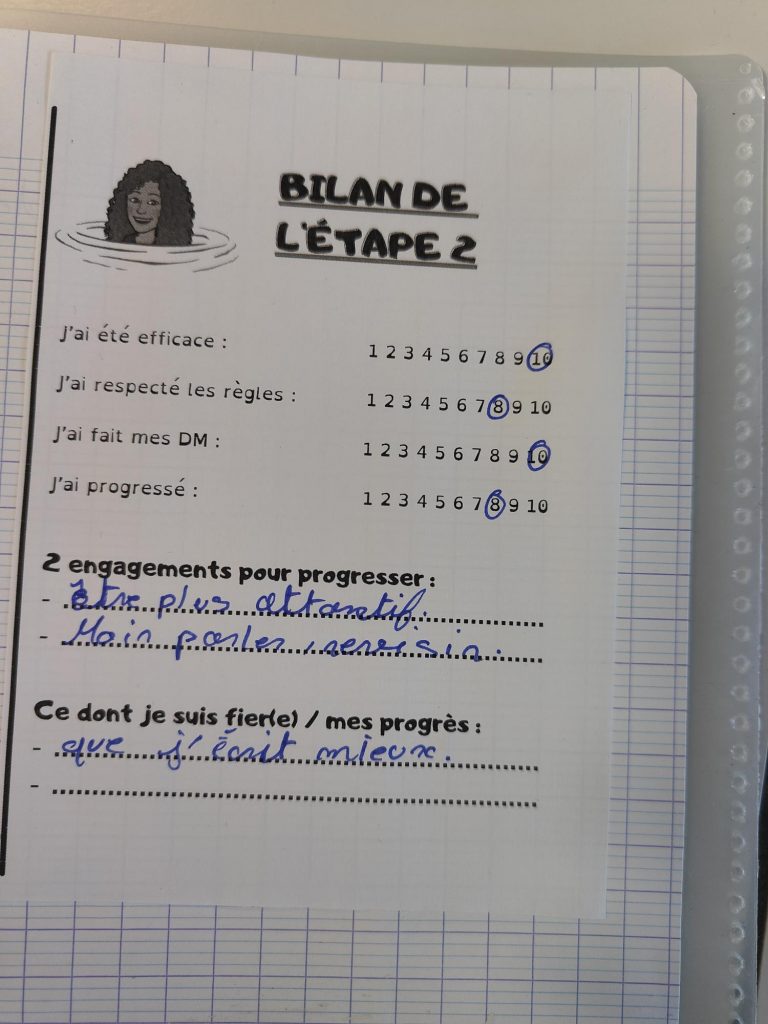 BILAN DE
L'ÉTAPE 2
J'ai été efficace : 1 2 3 4 5 6 7 8 9 10
J'ai respecté les règles : 1 2 3 4 5 6 7 8 9 10
J'ai fait mes DM : 1 2 3 4 5 6 7 8 9 10
J'ai progressé : 1 2 3 4 5 6 7 8 9 10
2 engagements pour progresser :
- être plus attantif.
- Moin parler
Ce dont je suis fier(e) / mes progrès :
- que j'écrit mieux.
-